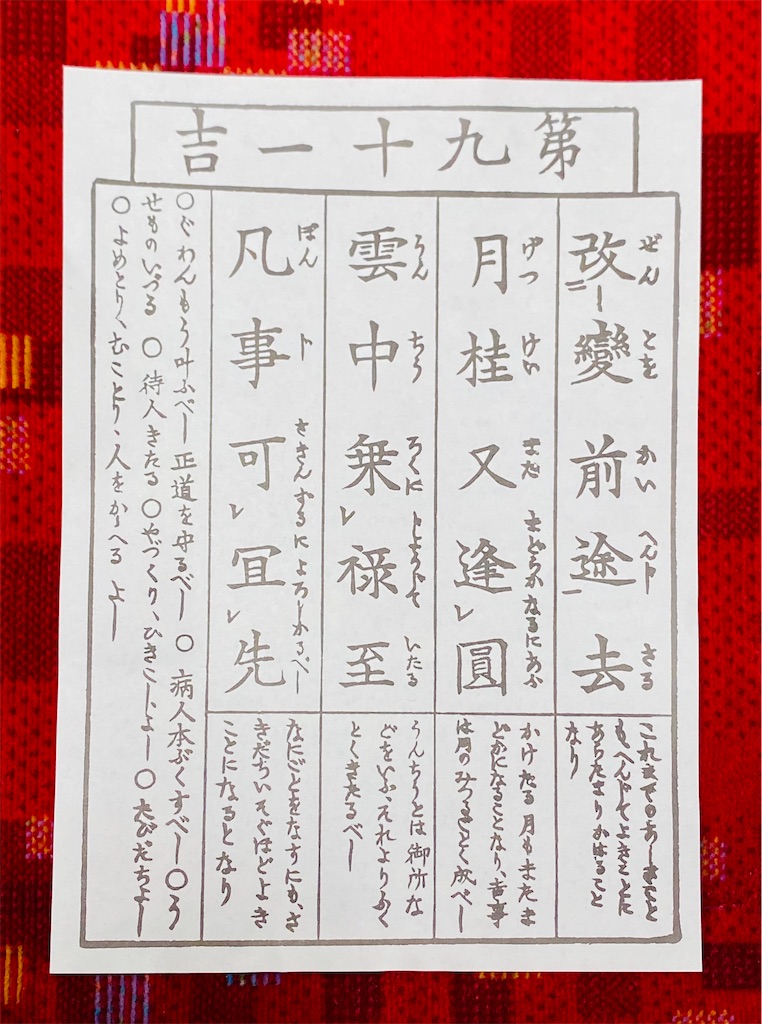 第九十一吉
改變前途去
ぜん とを かい へんじ さる
これまでのあしきこと
もへんじてよきことに
あらたまりかはること
なり
月桂又逢圓
げつ けい また まどらかなるにあふ
かけたる月もまたま
どかになることなり、吉事
は月のみつるごとく成べし
雲中乗禄至
うん ちう ろくに じようじて いたる
うんちうとは御所な
どをいふ、それよりふく
とくきたるべし
凡事可冝先
ぼん ト さきんずるによろしかるべし
なにごとをなすにも、さ
きだちいそぐほどよき
ことになるとなり
○ぐわんもう叶ふべし正道を守るべし ○病人本ぶくすべし○う
せものいづる ○待人きたる ○やづくり、ひきこし、よし○たびだちよし
○よめとり、むことり、人をかゝへる よし